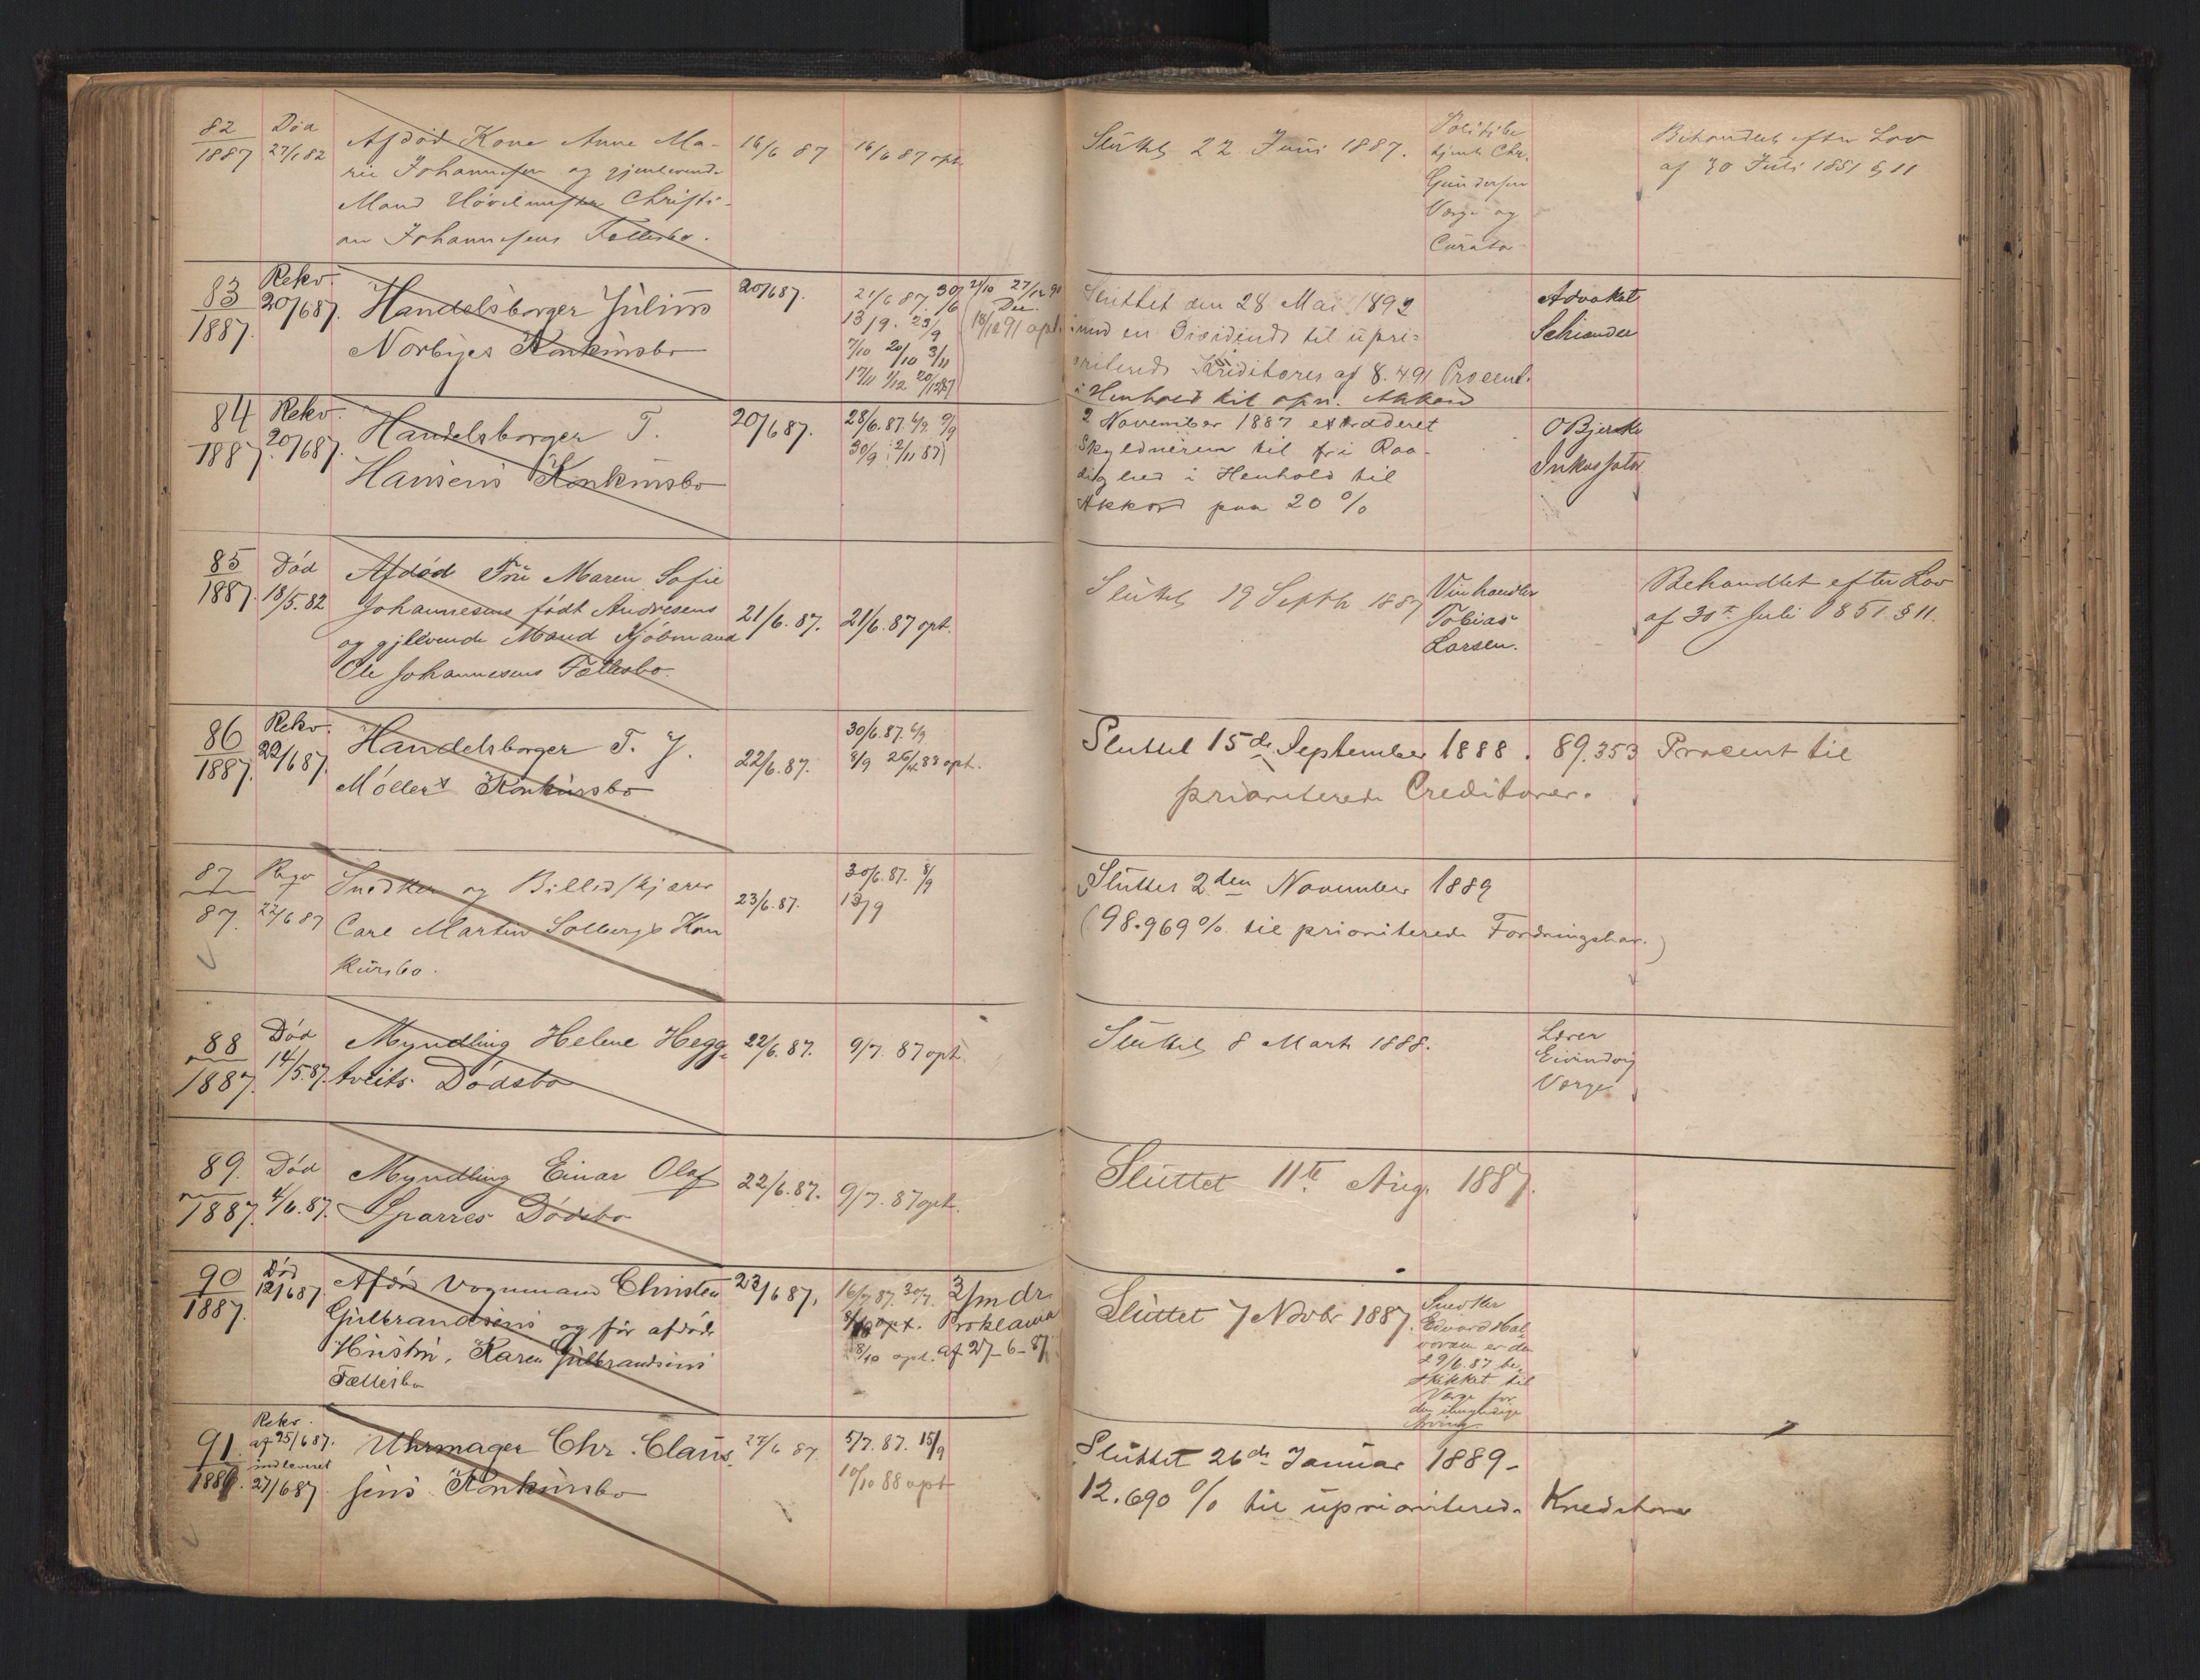 82
1887
Død
27/1 82
Afdød Kone Anne Ma-
rie Johannesen og gjenlevende
Mand Christi-
an Johannesens Fællesbo.
16/6 87
16/6 87 opt.
Sluttet 22 Juni 1887.
Politibe
tjent Chr.
Gundersen
Værge og
Curator
Behandlet efter Lov
af 30 Juli 1851 § 11
83
1887.
Rekv.
20/6 87.
Handelsborger Julius
Norbyes Konkursbo
20/6 87.
21/6 87. 30/6
13/9. 23/9
7/10 20/10 3/11
17/11 1/12 20/12 87
18/12 91 opt.
Sluttet den 28 Mai 1892
med en Dividende til upri-
oriterede Kreditorer af 8.491 Procent.
i Henhold til opn. Akkord
Advokat
Schiander
84
1887.
Rekv.
20/6 87.
Handelsborger T.
Hansens Konkursbo
20/6 87.
28/6. 87. 6/9 9/9
30/9 2/11 87
2 November 1887 extraderet
Skyldneren til fri Raa-
dighed i Henhold til
Akkord paa 20 %
O Bjerke
Inkassator
85
1887.
Død
18/5. 82
Afdød Fru Maren Sofie
Johannesens født Andresens
og gjlevende Mand Kjøbmand
Ole Johannesens Fællesbo.
21/6. 87.
21/6. 87 opt.
Sluttet 19 Septb 1887
Vinhandler
Tobias
Larsen.
Behandlet efter Lov
af 30te Juli 1851. § 11.
86
1887.
Rekv.
22/6 87.
Handelsborger T. J.
Møllers Konkursbo
22/6. 87.
30/6. 87. 6/9
8/9 opt.
Sluttet 15de September 1888. 89.353 Procent til
prioriterede Creditorer.
87
87.
22/6 87
Snedker og Billedskjærer
Carl Martin Solbergs Kon
kursbo.
23/6. 87.
30/6. 87. 8/9
13/9
Sluttet 2den November 1889
(98.969 % til prioriterede Fordringshav.)
88
1887.
Død
14/5. 87.
Myndling Helene Hegg-
tveits Dødsbo
22/6. 87.
9/7. 87 opt.
Sluttet 8 Marts 1888.
Lærer
Eivindvig
Værge
89.
1887.
Død
4/6. 87.
Myndling Einar Olaf
Sparres Dødsbo
22/6. 87.
9/7. 87 opt.
Sluttet 11te Aug. 1887.
90
1887.
Død
12/6 87.
Afdøde Vognmand Christen
Gulbrandsens og før afdøde
Hustru, Karen Gulbrandsens
Fællesbo
23/6 87.
16/7 87. 30/7.
8/10 opt.
3/mdr
Proklama
af 27-6-87.
Sluttet 7 Novbr 1887.
Snedker
Edvard Hal-
vorsen er den
29/6. 87 be-
skikket til
Værge for
den umyndige
Arving
91.
1887.
Rekv.
af 25/6 87.
indleveret
27/6 87.
Uhrmager Chr. Claus-
sens Konkursbo
27/6 87.
5/7. 87. 15/9
10/10 88 opt
Sluttet 26de Januar 1889 -
12.690 % til uprioriterede Kreditorer